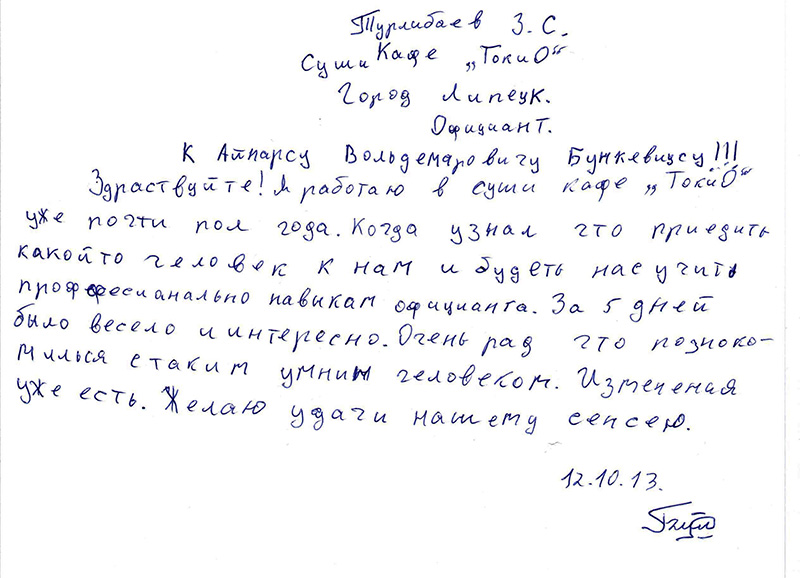 Турлибаев З. С.
Суши Кафе „ТокиО“
Город Липецк.
Официант.
К Айварсу Вольдемаровичу Бункевицсу!!!
Здраствуйте! Я работаю в суши кафе „ТокиО“
уже почти пол года. Когда узнал что приедить
какойто человек к нам и будеть нас учить
проффесианально навыкам официанта. За 5 дней
было весело и интересно. Очень рад что позноко-
милься с таким умним человеком. Изменения
уже есть. Желаю удачи нашему сенсею.
12.10.13.